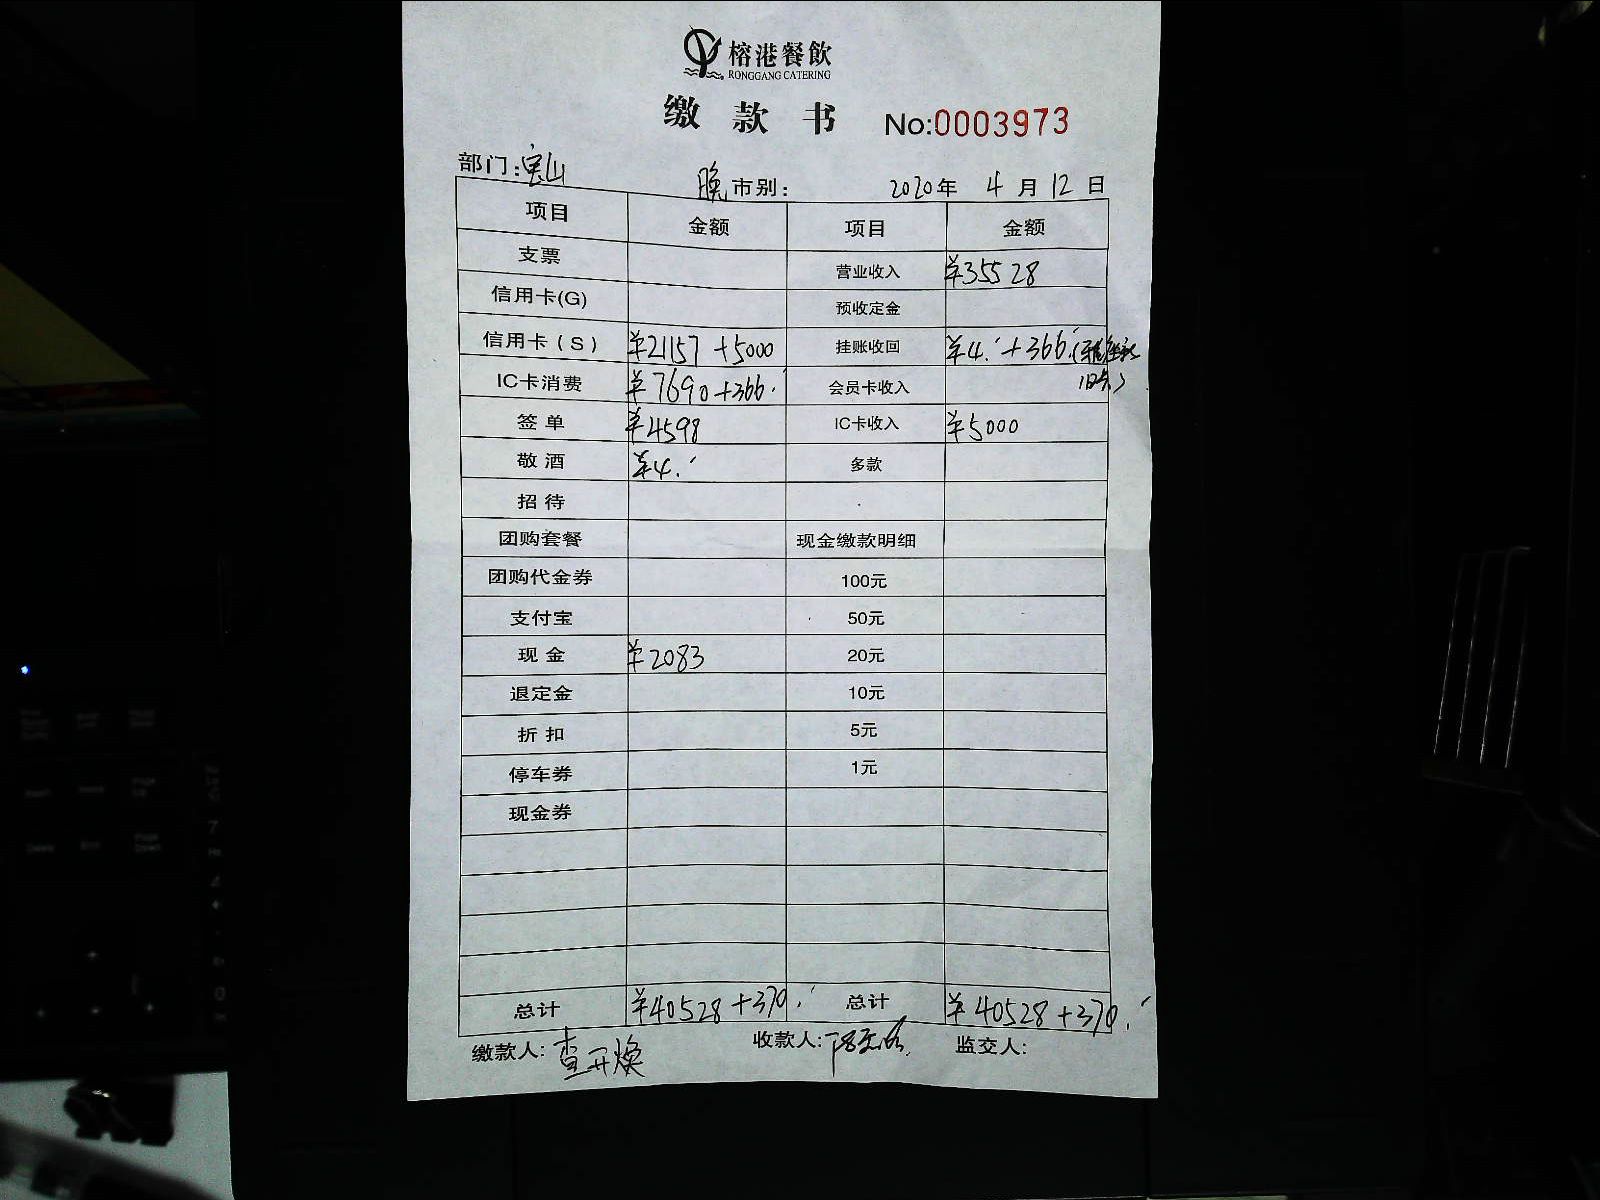 榕港餐飲
RONGGANG CATERING
缴款书 No:0003973
部门:宝山 晚市别: 2020年 4月12日
项目 金额 项目 金额
支票 营业收入 ¥35528
信用卡(G) 预收定金
信用卡(S) ¥21157+5000 挂账收回 ¥4.+366.
IC卡消费 ¥7690+366. 会员卡收入
签单 ¥4598 IC卡收入 ¥5000
敬酒 ¥4. 多款
招待
团购套餐 现金缴款明细
团购代金券 100元
支付宝 50元
现金 ¥2083 20元
退定金 10元
折扣 5元
停车券 1元
现金券
总计 ¥40528+370. 总计 ¥40528+370.
缴款人:查开焕 收款人: 监交人: